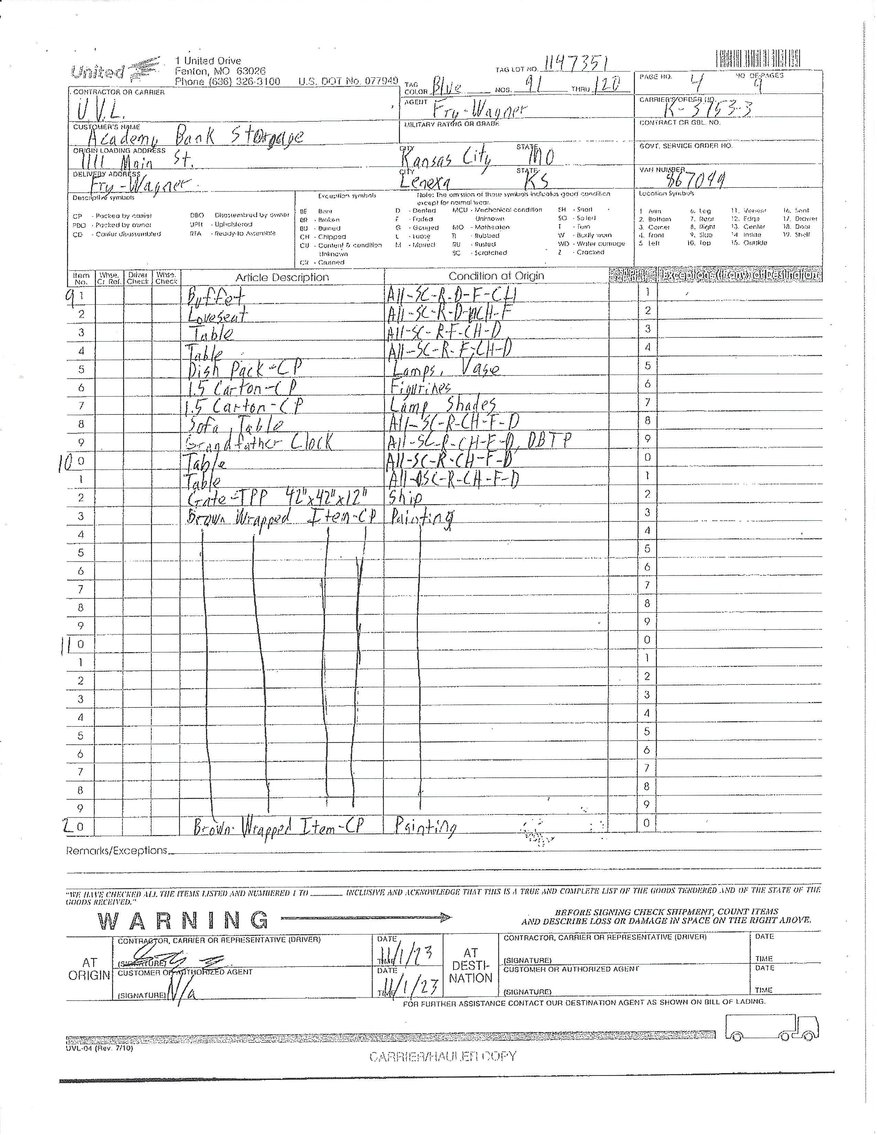 United
1 United Drive
Fenton, MO 63026
Phone (636) 326-3100 U.S. DOT No. 077949
TAG LOT NO. 1147351
TAG COLOR Blue NOS. 91 THRU 120
PAGE NO. 4 NO. OF PAGES 9
CONTRACTOR OR CARRIER U.V.L.
AGENT Fry-Wagner
CARRIER'S ORDER NO. K-3753-3
CUSTOMER'S NAME Academy Bank Storgage
MILITARY RATING OR GRADE
CONTRACT OR GBL. NO.
ORIGIN LOADING ADDRESS 1111 Main St.
CITY Kansas City STATE MO
GOVT. SERVICE ORDER NO.
DELIVERY ADDRESS Fry-Wagner
CITY Lenexa STATE KS
VAN NUMBER 867099
Descriptive symbols
CP - Packed by carrier
PBO - Packed by owner
CD - Carrier disassembled
DBO - Disassembled by owner
UPH - Upholstered
RTA - Ready-To-Assemble
Exception symbols
Note: the omission of these symbols indicates good condition except for normal wear.
BE - Bent
BR - Broken
BU - Burned
CH - Chipped
CU - Content & condition Unknown
CR - Crushed
D - Dented
F - Faded
G - Gouged
L - Loose
M - Marred
MCU - Mechanical condition Unknown
MO - Motheaten
R - Rubbed
RU - Rusted
SC - Scratched
SH - Short
SO - Soiled
T - Torn
W - Badly worn
WD - Water damage
Z - Cracked
Location Symbols
1. Arm 6. Leg 11. Veneer 16. Seat
2. Bottom 7. Rear 12. Edge 17. Drawer
3. Corner 8. Right 13. Center 18. Door
4. Front 9. Side 14. Inside 19. Shelf
5. Left 10. Top 15. Outside
Item No. Whse. Cr Ref. Driver Check Whse. Check Article Description Condition at Origin Exceptions (if any) at Destination
91 Buffet All-SC-R-D-F-CH 1
2 Loveseat All-SC-R-D-CH-F 2
3 Table All-SC-R-F-CH-D 3
4 Table All-SC-R-F-CH-D 4
5 Dish Pack-CP Lamps, Vase 5
6 1.5 Carton-CP Figurines 6
7 1.5 Carton-CP Lamp Shades 7
8 Sofa Table All-SC-R-CH-F-D 8
9 Grandfather Clock All-SC-R-CH-F-D, DBTP 9
100 Table All-SC-R-CH-F-D 0
1 Table All-SC-R-CH-F-D 1
2 Crate-TPP 42"x42"x12" Ship 2
3 Brown Wrapped Item-CP Painting 3
4 4
5 5
6 6
7 7
8 8
9 9
110 0
1 1
2 2
3 3
4 4
5 5
6 6
7 7
8 8
9 9
20 Brown Wrapped Item-CP Painting 0
Remarks/Exceptions
"WE HAVE CHECKED ALL THE ITEMS LISTED AND NUMBERED 1 TO ______ INCLUSIVE AND ACKNOWLEDGE THAT THIS IS A TRUE AND COMPLETE LIST OF THE GOODS TENDERED AND OF THE STATE OF THE
GOODS RECEIVED."
WARNING
BEFORE SIGNING CHECK SHIPMENT, COUNT ITEMS
AND DESCRIBE LOSS OR DAMAGE IN SPACE ON THE RIGHT ABOVE.
AT ORIGIN
CONTRACTOR, CARRIER OR REPRESENTATIVE (DRIVER)
(SIGNATURE)
DATE 11/1/23
TIME
CUSTOMER OR AUTHORIZED AGENT
(SIGNATURE) N/a
DATE 11/1/23
TIME
AT DESTI-NATION
CONTRACTOR, CARRIER OR REPRESENTATIVE (DRIVER)
DATE
(SIGNATURE)
TIME
CUSTOMER OR AUTHORIZED AGENT
DATE
(SIGNATURE)
TIME
FOR FURTHER ASSISTANCE CONTACT OUR DESTINATION AGENT AS SHOWN ON BILL OF LADING.
UVL-04 (Rev. 7/10)
CARRIER/HAULER COPY